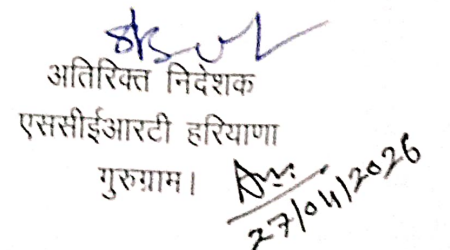 अतिरिक्त निदेशक
एससीईआरटी हरियाणा
गुरुग्राम।
27/04/2026